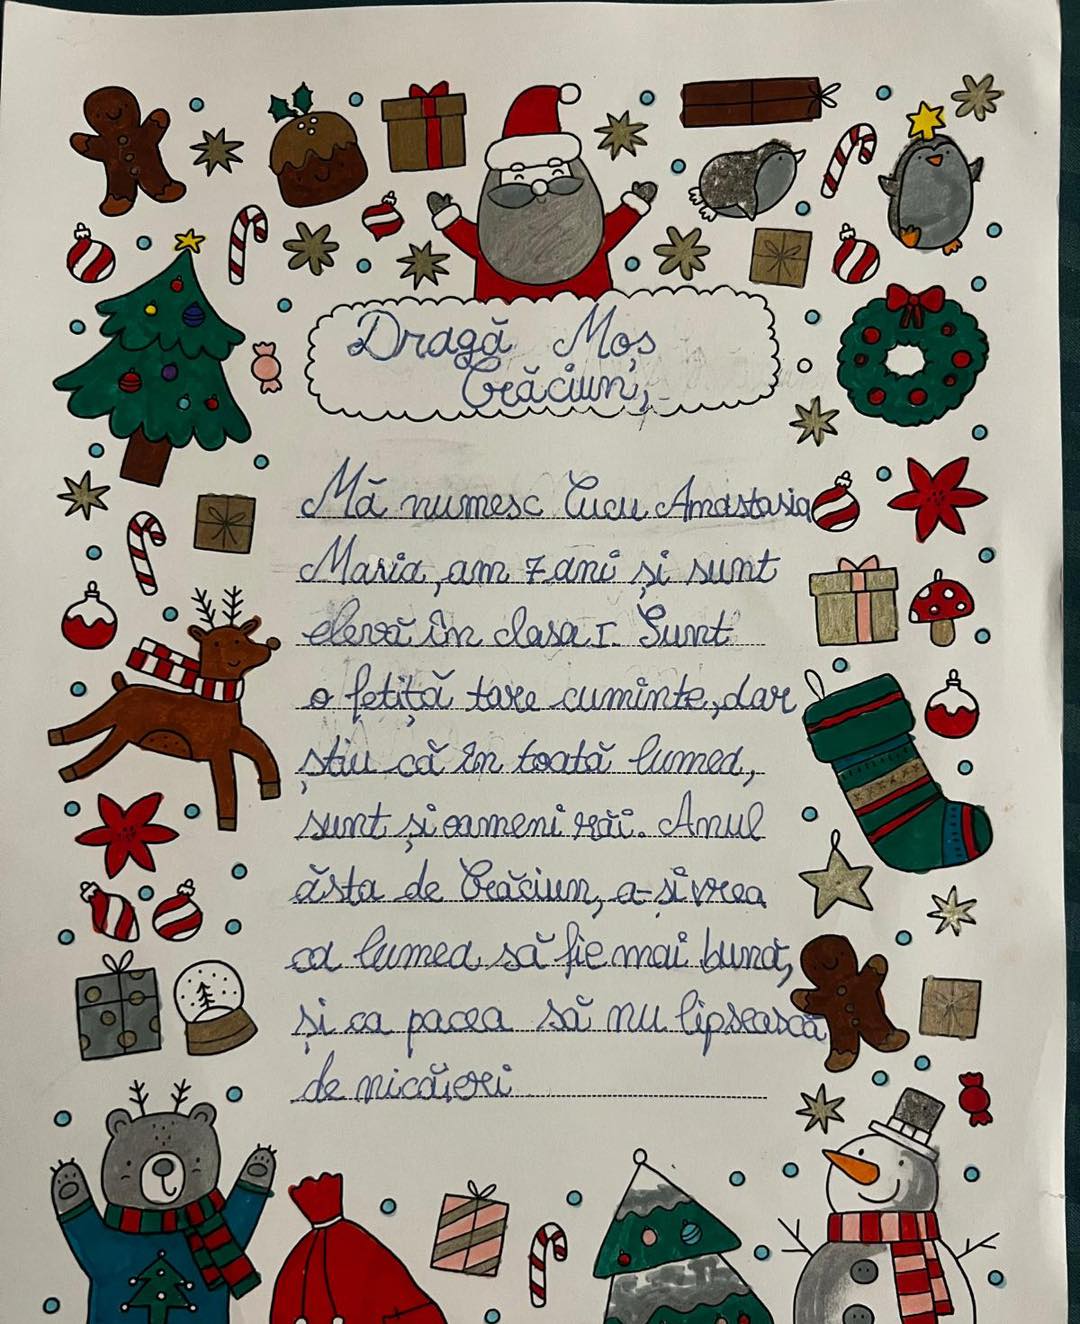 Dragă Moș
Crăciun,
Mă numesc Cucu Anastasia
Maria, am 7 ani și sunt
elevă în clasa I. Sunt
o fetiță tare cuminte, dar
știu că în toată lumea,
sunt și oameni răi. Anul
ăsta de Crăciun, a-și vrea
ca lumea să fie mai bună,
și ca pacea să nu lipsească
de nicăieri